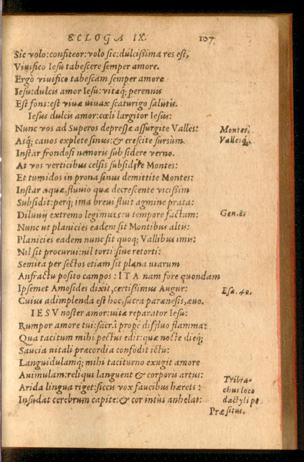 ECLOGA IX. 137
Sic volo: confiteor: volo sic: dulcissima res est,
Vivifico Iesu tabescere semper amore.
Ergò vivifico tabescam semper amore
Iesu: dulcis amor Iesu: vitæq; perennis
Est fons: est vivæ vivax scaturigo salutis.
Iesus dulcis amor: cœli largitor Iesus:
Nunc vos ad Superos depressæ assurgite Valles: Montes,
Atq; cavos explete sinus: & crescite sursum. Valles.
Instar frondosi nemoris sub sidere verno.
At vos verticibus celsis subsidite Montes:
Et tumidos in prona sinus demittite Montes:
Instar aquæ, fluvio quæ decrescente vicissim
Subsidit: perq; ima brevi fluit agmine prata:
Diluvij extremo legimus ut tempore factum: Gen. 8.
Nunc ut planicies eadem sit Montibus altis:
Planicies eadem nunc sit quoq; Vallibus imis:
Nil sit procurvi: nil torti: sive retorti:
Semita per sectos etiam sit plana viarum
Anfractu posito campos: ITA nam fore quondam
Ipsemet Amosides dixit, certissimus Augur: Esa. 40.
Cuius adimplenda est hoc, sacra parænesis, ævo.
IESV noster amor: vitæ reparator Iesu:
Rumpor amore tui: sacri prope disfluo flamma:
Qua tacitum mihi pectus edit: quæ nocte dieq;
Saucia vitali præcordia confodit ictu:
Languidulamq; mihi taciturno exugit amore
Animulam: reliqui languent & corporis artus:
Arida lingua riget: siccis vox faucibus hæret: Tribra-
chus loco
Insudat cerebrum capite: & cor intus anhelat: dactyli pe.
Præsitus.